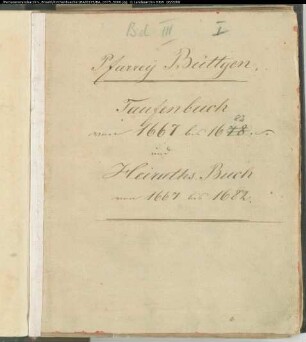 Bd. III I
Pfarrey Büttgen.
Taufenbuch
von 1667 bis 1682
und
Heiraths Buch
von 1667 bis 1682.